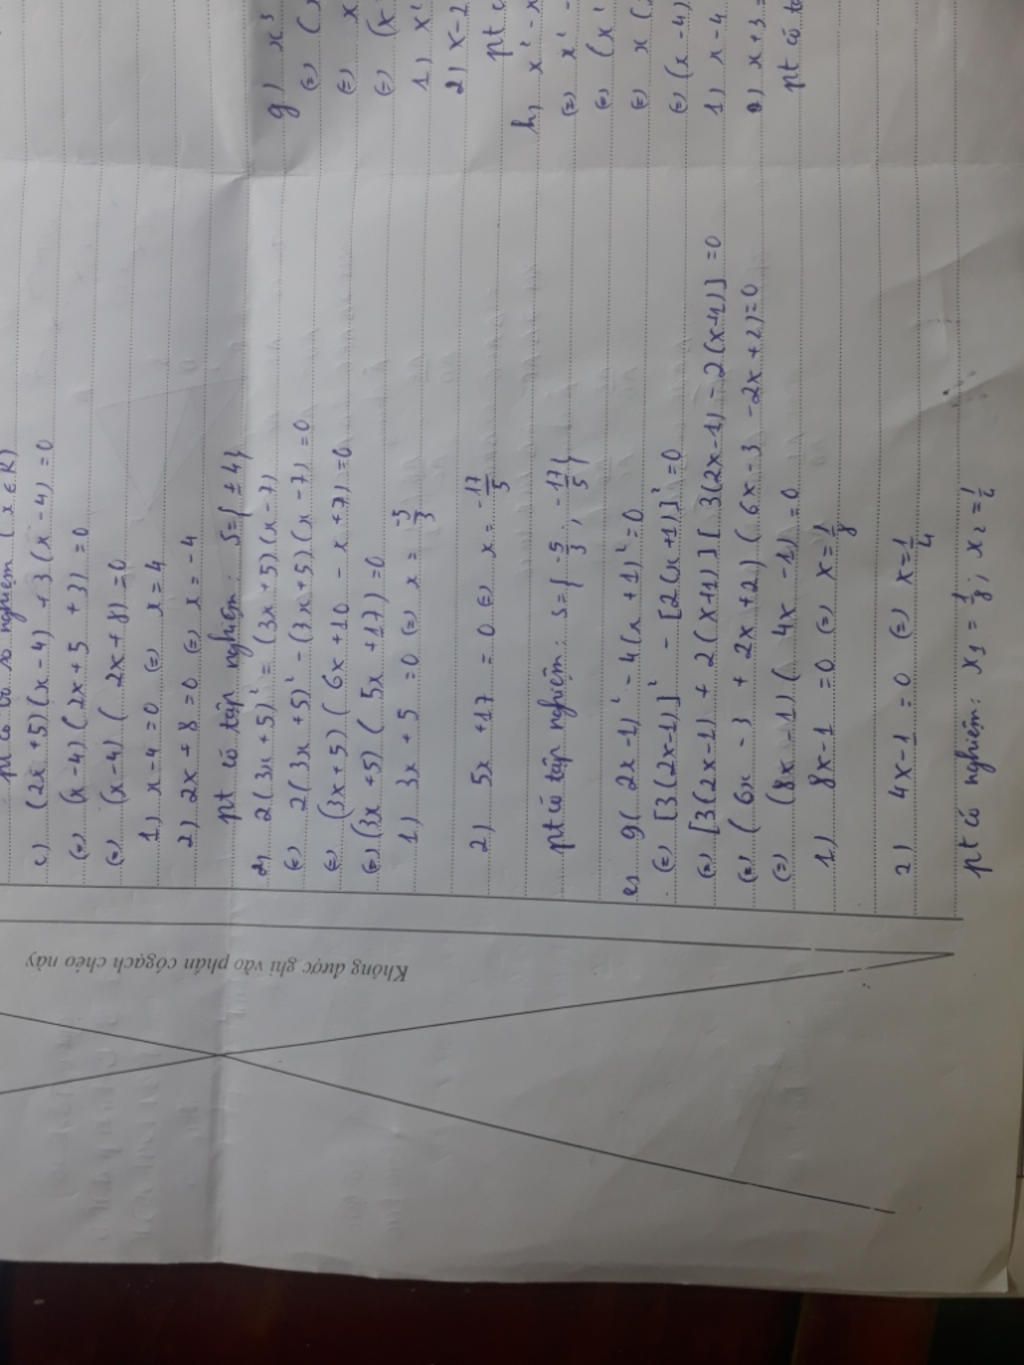 pt có vô số nghiệm (x ∈ R)
c) (2x+5)(x-4) + 3(x-4) = 0
(=) (x-4)(2x+5 +3) = 0
(=) (x-4)( 2x+8) = 0
1) x-4 = 0 (=) x = 4
2) 2x + 8 = 0 (=) x = -4
pt có tập nghiệm: S={ ± 4}
d) 2(3x+5)² = (3x+5)(x-7)
(=) 2(3x+5)² - (3x+5)(x-7) = 0
(=) (3x+5)( 6x+10 - x+7) = 0
(=) (3x+5)( 5x+17) = 0
1) 3x + 5 = 0 (=) x = -5/3
2) 5x +17 = 0 (=) x = -17/5
pt có tập nghiệm: S={ -5/3 ; -17/5 }
e) 9( 2x-1)² - 4(x+1)² = 0
(=) [3(2x-1)]² - [2(x+1)]² = 0
(=) [3(2x-1) + 2(x+1)] [ 3(2x-1) - 2(x+1)] = 0
(=) ( 6x - 3 + 2x+2)( 6x-3 -2x+2) = 0
(=) (8x-1)( 4x -1) = 0
1) 8x-1 = 0 (=) x = 1/8
2) 4x-1 = 0 (=) x = 1/4
pt có nghiệm: x₁ = 1/8 ; x₂ =
g) x³
(=) (
(=) x
(=) (x
1) x²
2) x-2
pt
h) x² - x
(=) x² -
(=) (x²
(=) x (
(=) (x-4)
1) x-4
2) x+3 =
pt có
Không được ghi vào phần có gạch chéo này